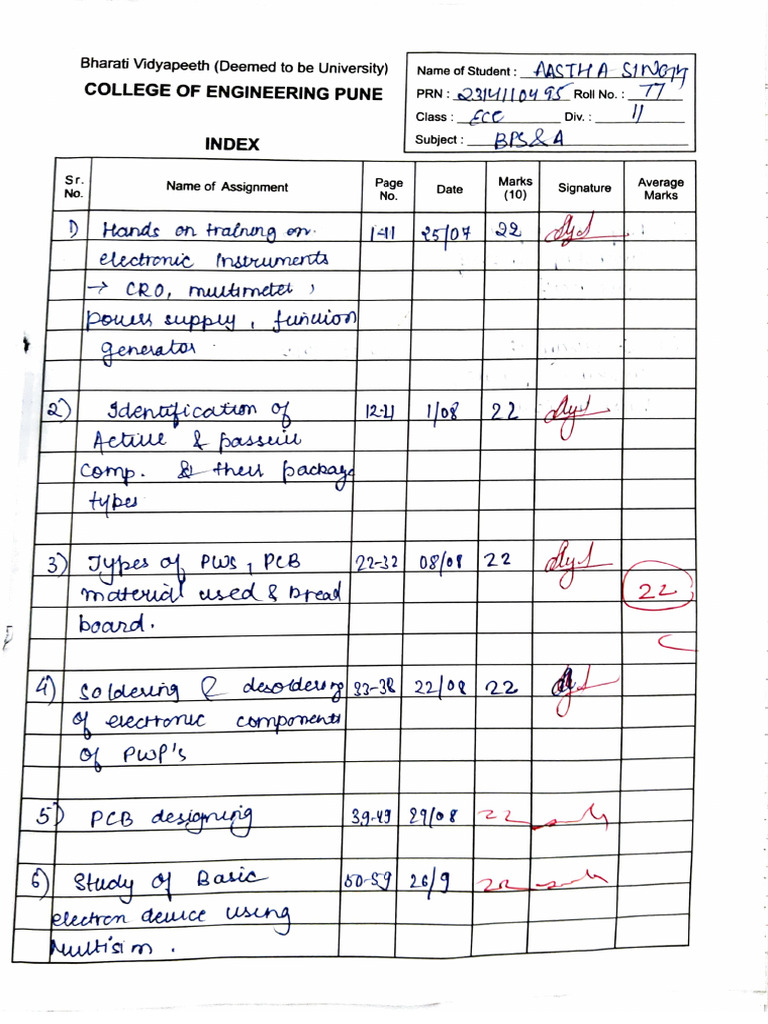 Bharati Vidyapeeth (Deemed to be University)
COLLEGE OF ENGINEERING PUNE
INDEX
Name of Student : AASTHA SINGH
PRN : 2314110495 Roll No. : 77
Class : ECE Div. : 11
Subject : BPS & A
Sr. No. Name of Assignment Page No. Date Marks (10) Signature Average Marks
1) Hands on training on 1-11 25/07 22
electronic Instruments
→ CRO, multimeter,
power supply, function
generator
2) Identification of 12-21 1/08 22
Active & passeiu
comp. & their package
types
3) Types of PWS, PCB 22-32 08/08 22
material used & bread 22
board.
4) Soldering & desoldering 33-38 22/08 22
of electronic components
of PWP's
5) PCB designing 39-49 29/08 22
6) Study of Basic 50-59 26/9 22
electron device using
Multisim.